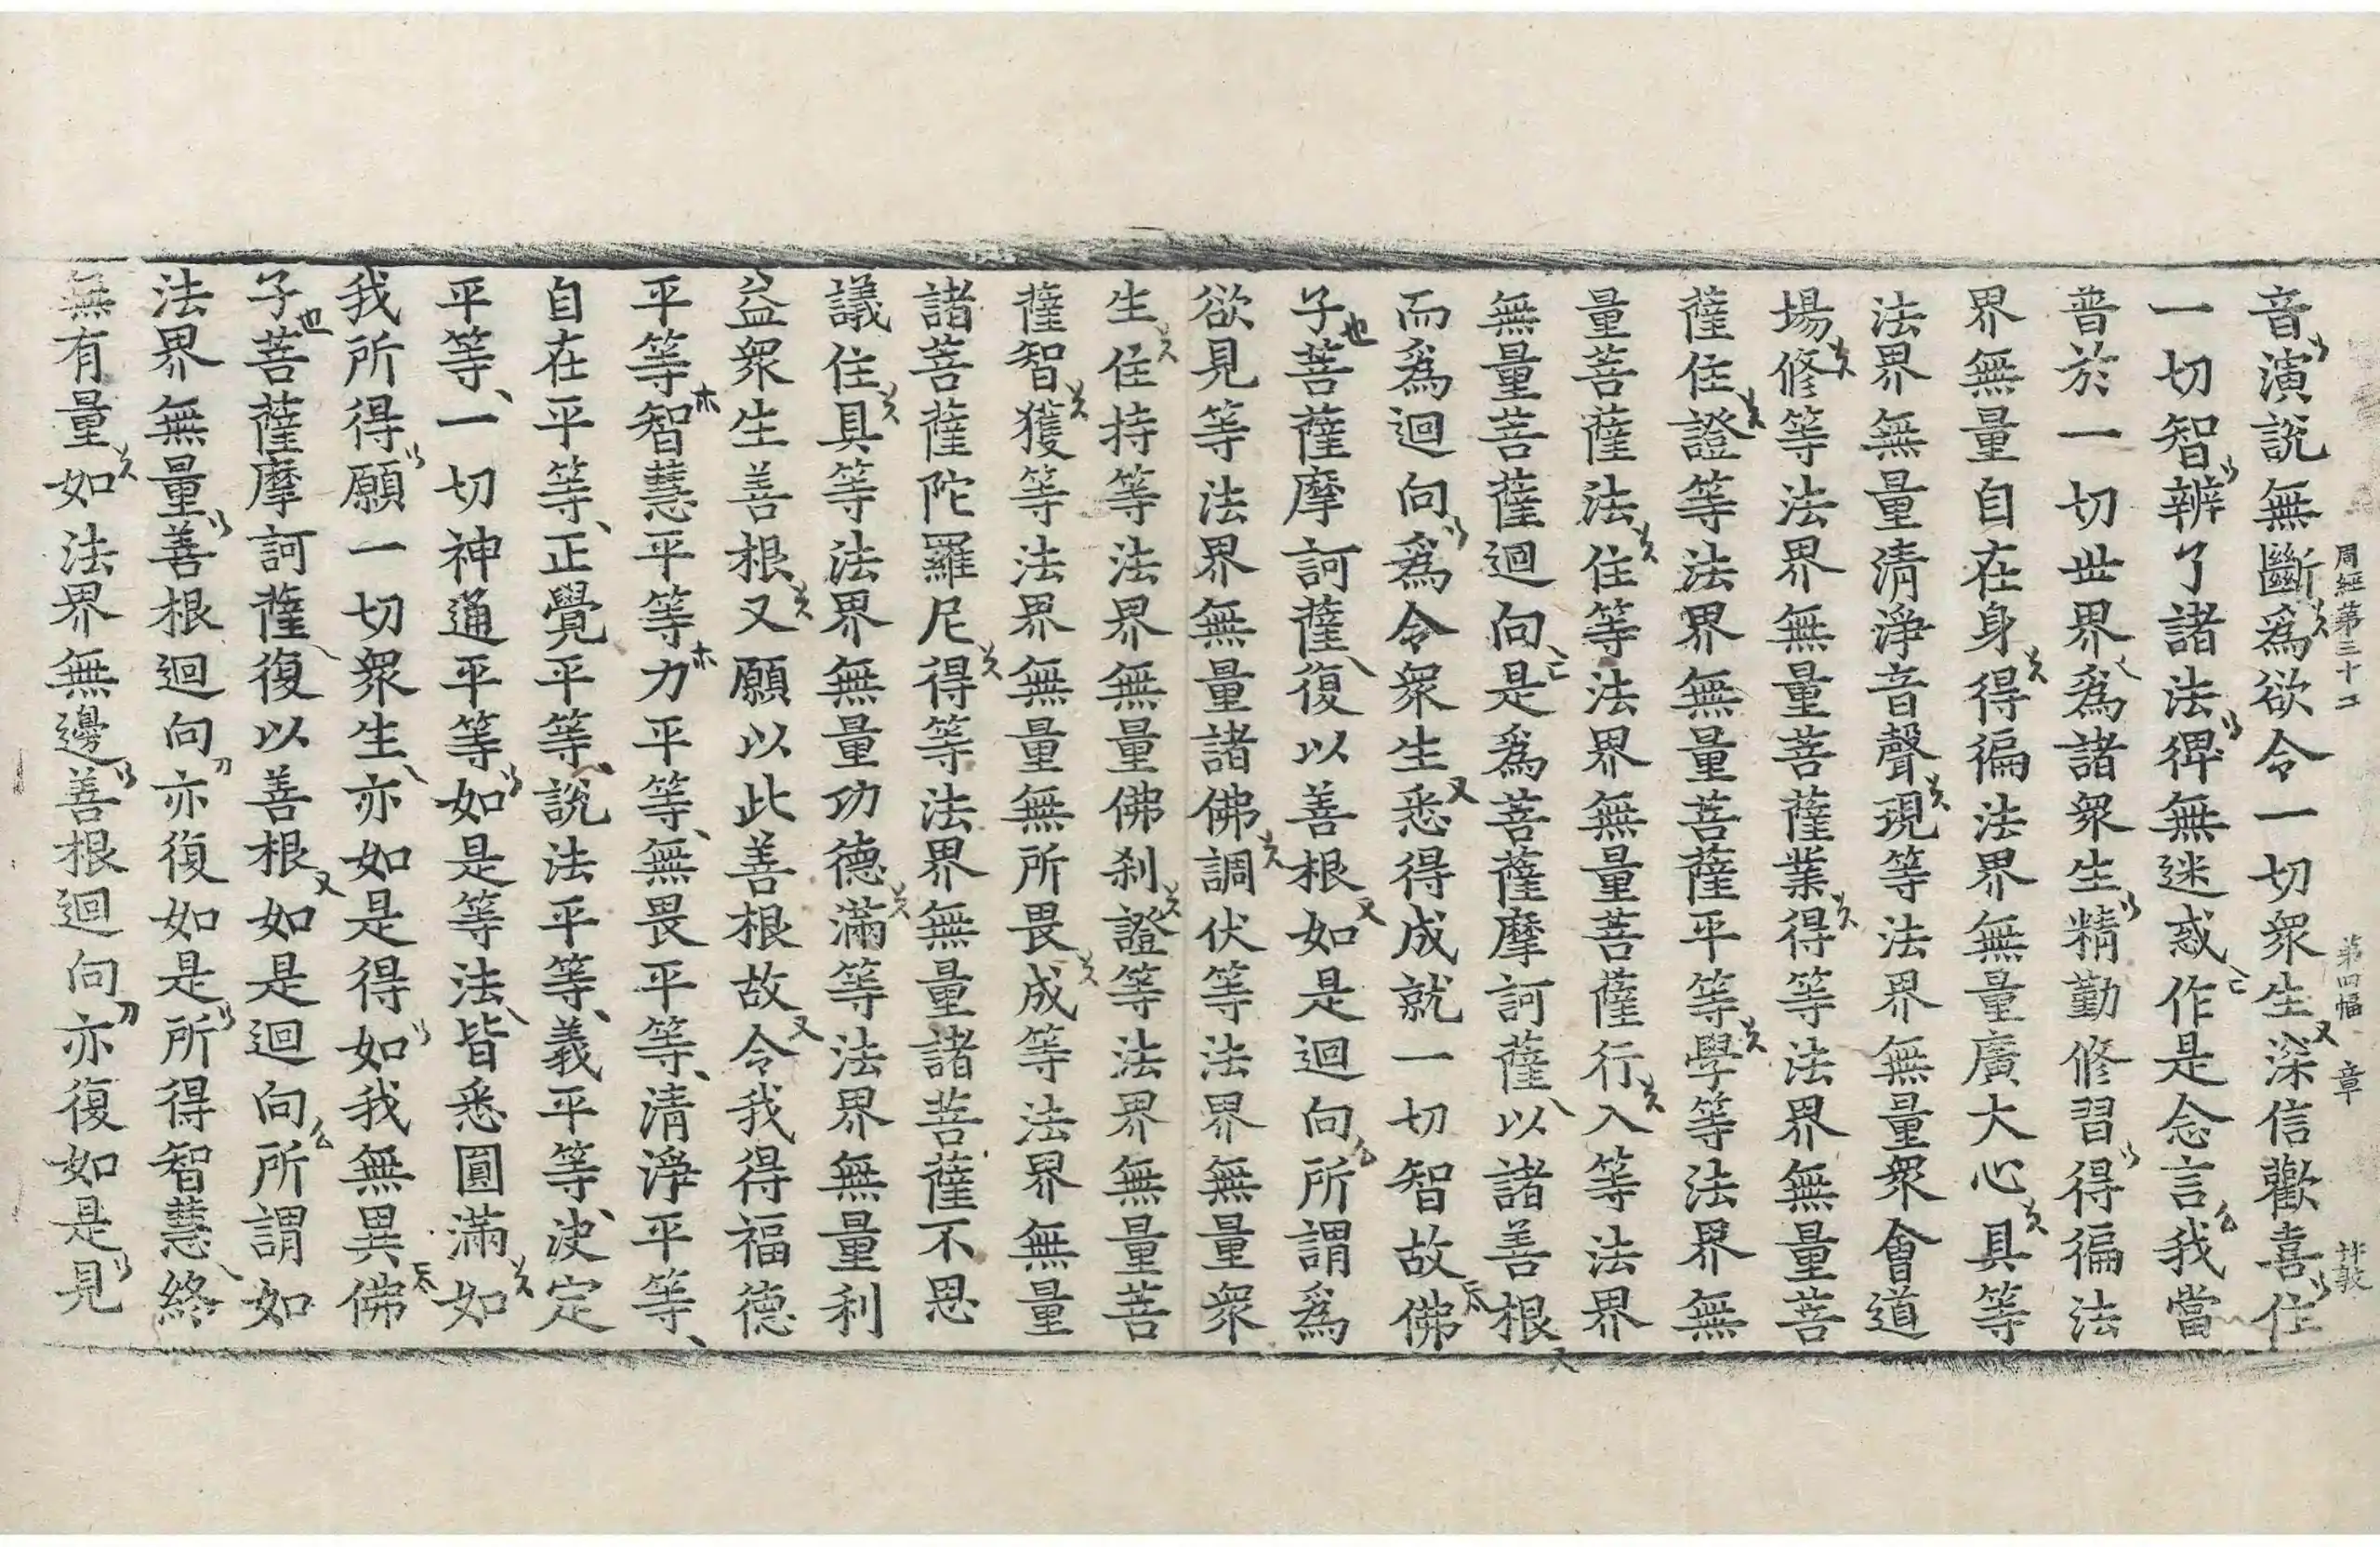 周經第三十 第四幅 章
音演說無斷爲欲令一切衆生深信歡喜住
一切智辨了諸法得無迷惑作是念言我當
普於一切世界爲諸衆生精勤修習得徧法
界無量自在身得徧法界無量廣大心具等
法界無量清淨音聲現等法界無量衆會道
場修等法界無量菩薩業得等法界無量菩
薩住證等法界無量菩薩平等學等法界無
量菩薩法住等法界無量菩薩行入等法界
無量菩薩迴向是爲菩薩摩訶薩以諸善根
而爲迴向爲令衆生悉得成就一切智故佛
子菩薩摩訶薩復以善根如是迴向所謂爲
欲見等法界無量諸佛調伏等法界無量衆
生住持等法界無量佛刹證等法界無量菩
薩智獲等法界無量無所畏成等法界無量
諸菩薩陀羅尼得等法界無量諸菩薩不思
議住具等法界無量功德滿等法界無量利
益衆生善根又願以此善根故令我得福德
平等智慧平等力平等無畏平等清淨平等
自在平等正覺平等說法平等義平等決定
平等一切神通平等如是等法皆悉圓滿如
我所得願一切衆生亦如是得如我無異佛
子菩薩摩訶薩復以善根如是迴向所謂如
法界無量善根迴向亦復如是所得智慧終
無有量如法界無邊善根迴向亦復如是見